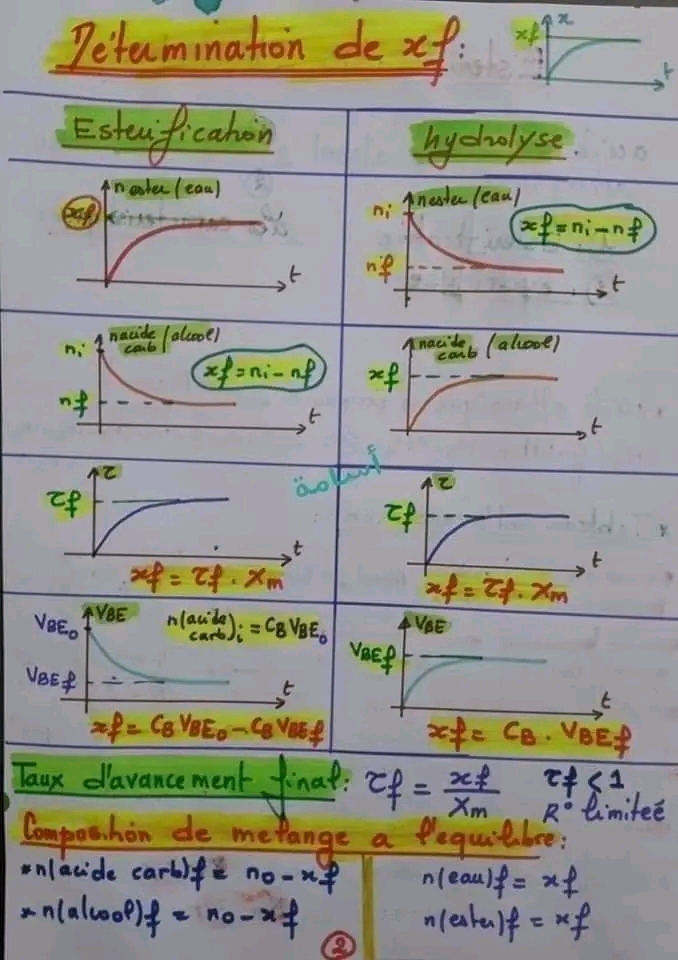 Détermination de xf:
xf
x
t
Esterification
hydrolyse
n ester (eau)
xf
t
n ester (eau)
ni
xf = ni - nf
nf
t
nacide carb (alcool)
ni
xf = ni - nf
nf
t
nacide carb (alcool)
xf
t
أسامة
τ
τf
t
xf = τf . Xm
τ
τf
t
xf = τf . Xm
VBE0
VBE
n(acide carb)i = CB VBE0
VBEf
t
xf = CB VBE0 - CB VBEf
VBE
VBEf
t
xf = CB . VBEf
Taux d'avancement final: τf = xf / Xm
τf < 1
R° limiteé
Composition de melange a l'equilibre:
*n(acide carb)f = n0 - xf
*n(alcool)f = n0 - xf
n(eau)f = xf
n(ester)f = xf
2